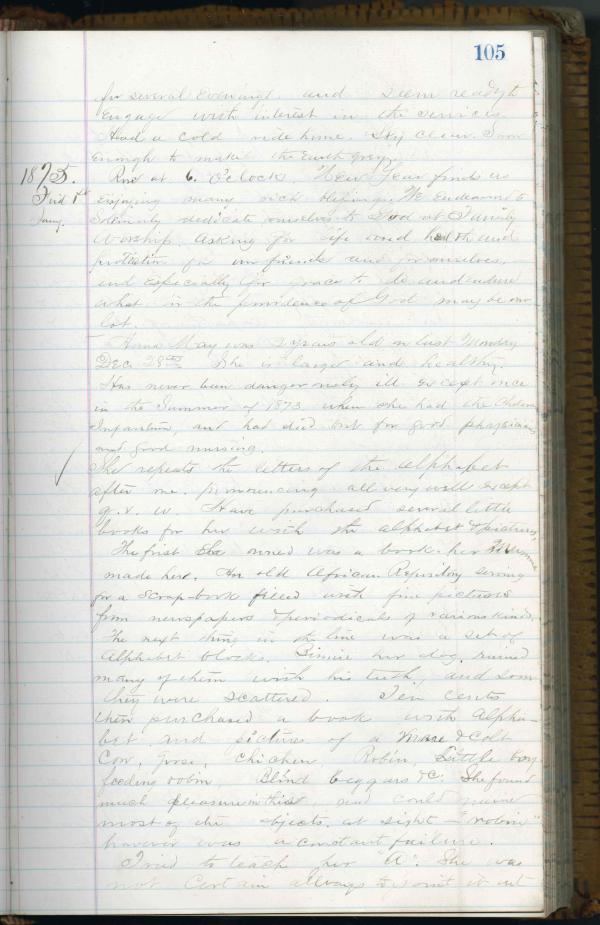 105
for several evenings, and seem ready to
engage with interest in the services.
Had a cold ride home. Sky clear. Snow
enough to make the Earth grey.
1875.
Frid 1st
Jany.
Rose at 6. O'clock. New Year finds us
enjoying many rich blessings. We Endeavor to
solemnly dedicate ourselves to God at Family
Worship, asking for life and health and
protection for our friends and for ourselves,
and Especially for grace to do and endure
what in the providence of God may be our
lot.
Anna May was 2 years old on last Monday
Dec. 28th. She is large and healthy.
Has never been dangerously ill Except once
in the Summer of 1873 when she had the Cholera
Infantum, and had died but for good physicians
and good nursing.
She repeats the letters of the alphabet
after me. pronouncing all very well except
g. v. w. Have purchased several little
books for her with the alphabet & pictures,
The first she owned was a book her Mamma
made her. An old African Repository serving
for a scrap-book filled with fine pictures
from newspapers & periodicals of various kinds.
The next thing in the line was a set of
Alphabet blocks. her dog, ruined
many of them with his teeth, and some
they were scattered. Ten cents
then purchased a book with Alpha-
bet and pictures of a Mare & Colt
Cow, Goose, Chicken, Robin, Little boy
feeding robin, Blind beggars &c. She found
much pleasure in this, and could name
most of the objects at sight – "robin"
however was a constant failure.
Tried to teach her "A". She was
not Certain always to point it out